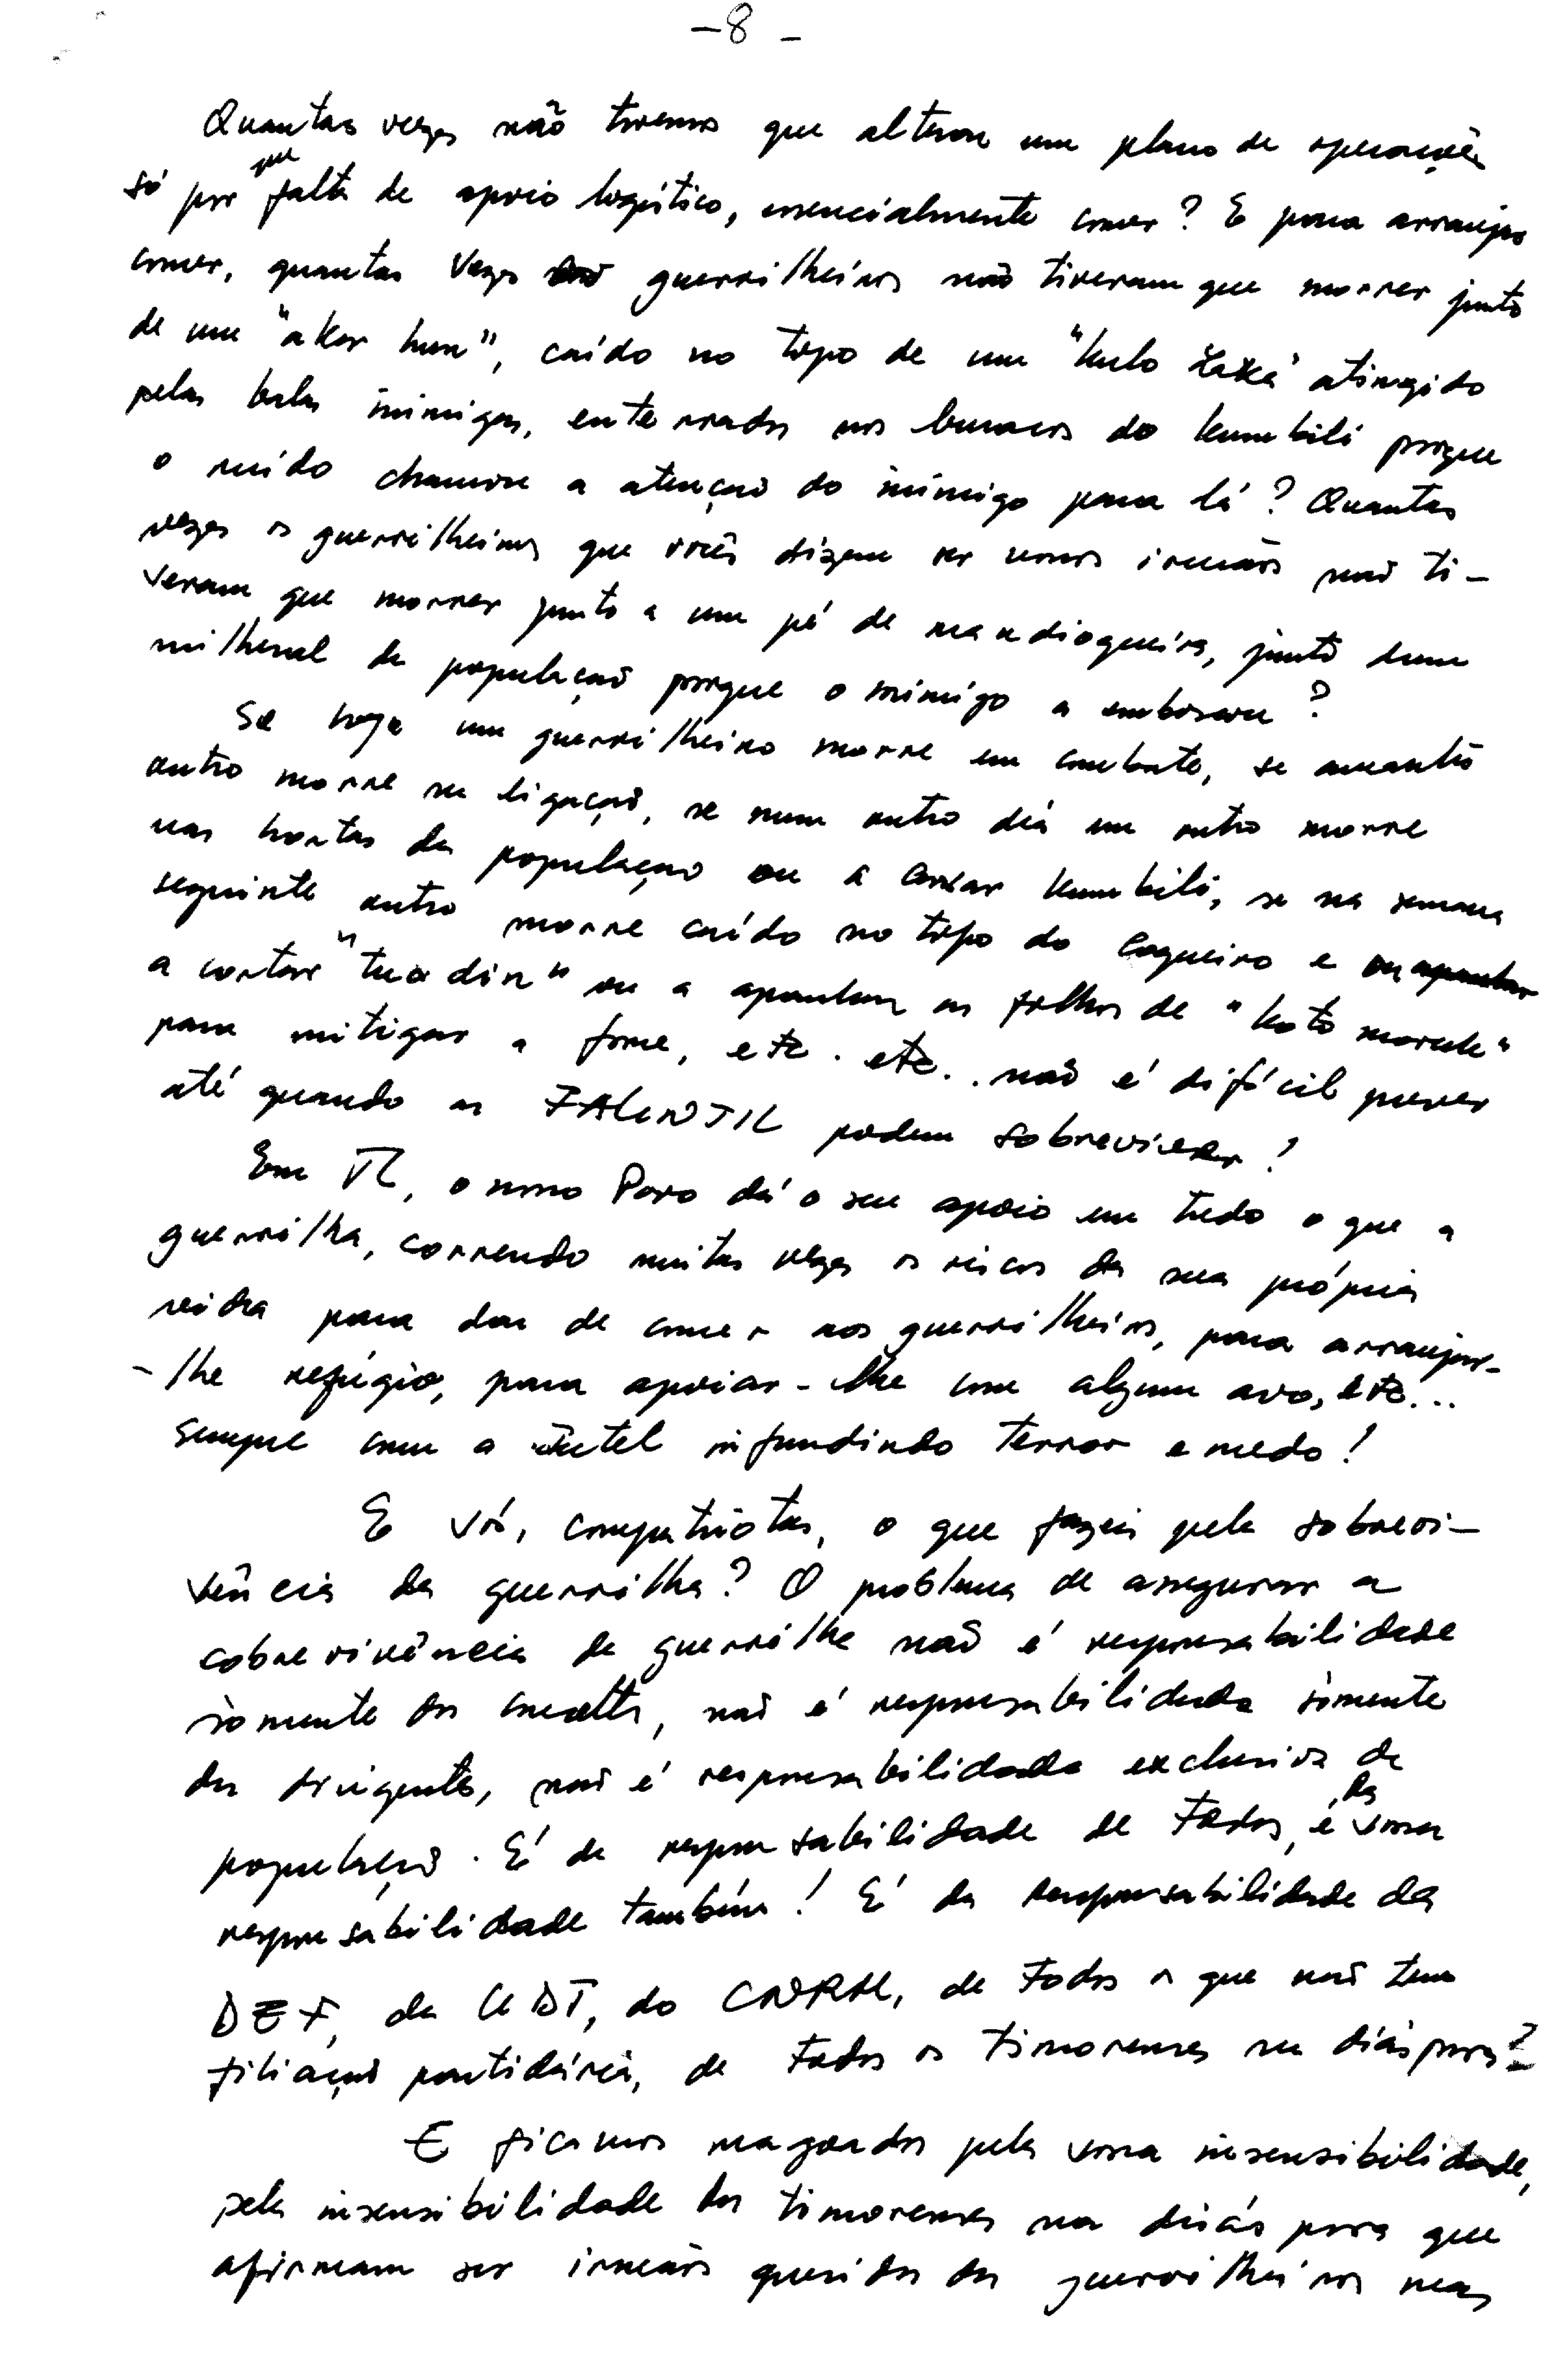 - 8 -
Quantas vezes não tivemos que alterar um plano de operações
só por que falta de apoio logístico, essencialmente comer? E para arranjar
comer, quantas vezes guerrilheiros não tiveram que morrer junto
de um "akar hun", caído no topo de um atingido
pelas balas inimigas, enterrados nos buracos do kumbili porque
o ruído chamou a atenção do inimigo para lá? Quantas
vezes os guerrilheiros que vocês dizem ser vossos irmãos não ti-
veram que morrer junto a um pé de mandioqueira, junto dum
milheral da população porque o inimigo a emboscou?
Se hoje um guerrilheiro morre em combate, se amanhã
outro morre na ligação, se num outro dia um outro morre
nas hortas da população ou a cavar kumbili, se na semana
seguinte outro morre caído no topo do coqueiro e ou apanhar
a cortar "tua din" ou a apanhar as folhas de "koto moruk"
para mitigar a fome, etc. etc.. não é difícil prever
até quando as FALINTIL podem sobreviver!
Em TL, o nosso Povo dá o seu apoio em tudo o que a
guerrilha, correndo muitas vezes os riscos da sua própria
vida para dar de comer aos guerrilheiros, para arranjar-
-lhe refúgio, para apoiar-lhe com algum avo, etc...
sempre com a intel infundindo terror e medo!
E vós, compatriotas, o que fazeis pela sobrevi-
vência da guerrilha? O problema de assegurar a
sobrevivência da guerrilha não é responsabilidade
sòmente do , não é responsabilidade sòmente
dos dirigentes, não é responsabilidade exclusiva da
população. É da responsabilidade de todos, é da vossa
responsabilidade também! É da responsabilidade da
DEF, da UDT, do CNRM, de todos os que não tem
filiação partidária, de todos os timorenses na diáspora?
E ficamos magoados pela vossa insensibilidade,
pela insensibilidade dos timorenses na diáspora que
afirmam ser irmãos queridos dos guerrilheiros mas